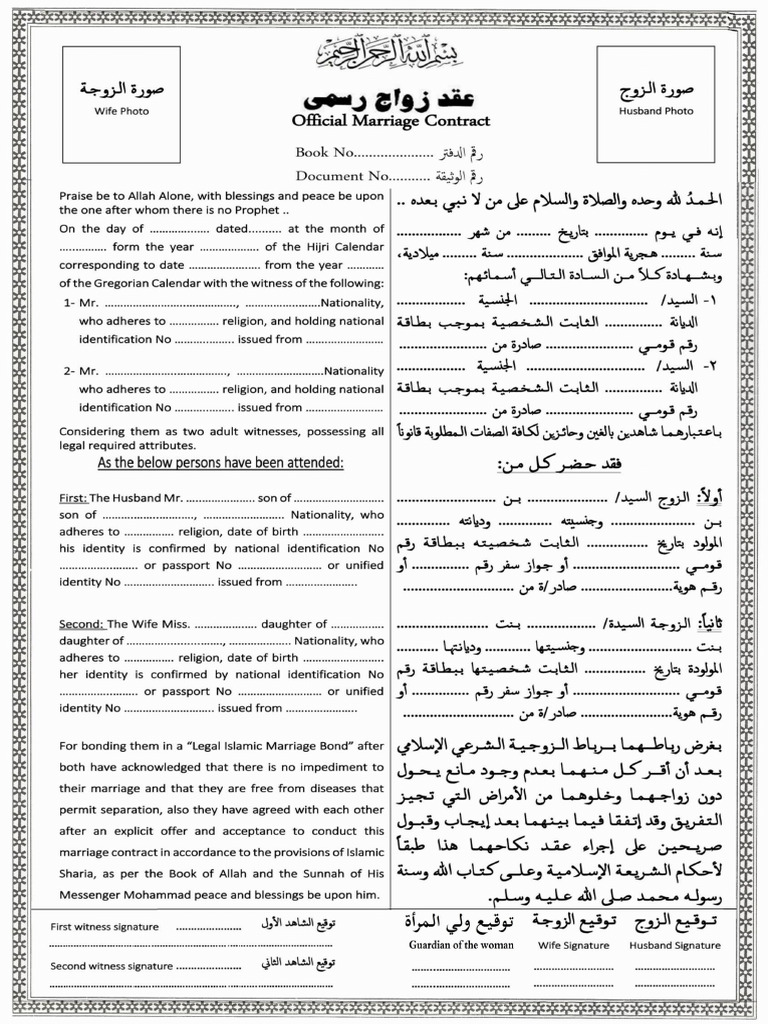 بسم الله الرحمن الرحيم
صورة الزوجة
Wife Photo
صورة الزوج
Husband Photo
عقد زواج رسمى
Official Marriage Contract
Book No..................... رقم الدفتر
Document No.......... رقم الوثيقة
Praise be to Allah Alone, with blessings and peace be upon
the one after whom there is no Prophet ..
On the day of .................. dated.......... at the month of
.............. form the year .................. of the Hijri Calendar
corresponding to date ..................... from the year ...........
of the Gregorian Calendar with the witness of the following:
1- Mr. ........................................, ......................Nationality,
who adheres to .............. religion, and holding national
identification No ................. issued from ......................
2- Mr. ......................................, ............................Nationality
who adheres to .............. religion, and holding national
identification No ................. issued from ......................
Considering them as two adult witnesses, possessing all
legal required attributes.
As the below persons have been attended:
First: The Husband Mr. .................... son of ..........................
son of ..........................., ........................ Nationality, who
adheres to ............... religion, date of birth .......................
his identity is confirmed by national identification No
....................... or passport No ............... or unified
identity No .................. issued from .....................
Second: The Wife Miss. .................. daughter of ...............
daughter of ..........................., .................. Nationality, who
adheres to ............... religion, date of birth .......................
her identity is confirmed by national identification No
....................... or passport No ............... or unified
identity No .................. issued from .....................
For bonding them in a “Legal Islamic Marriage Bond” after
both have acknowledged that there is no impediment to
their marriage and that they are free from diseases that
permit separation, also they have agreed with each other
after an explicit offer and acceptance to conduct this
marriage contract in accordance to the provisions of Islamic
Sharia, as per the Book of Allah and the Sunnah of His
Messenger Mohammad peace and blessings be upon him.
الحمدُ لله وحده والصلاة والسلام على من لا نبي بعده ..
إنه في يوم ............... بتاريخ .......... من شهر .................
سنة ......... هجرية الموافق ................ سنة ......... ميلادية،
وبشهادة كلاً من السادة التالي أسمائهم:
١- السيد/ .................................. الجنسية ....................
الديانة ................ الثابت الشخصية بموجب بطاقة
رقم قومي ....................... صادرة من .......................
٢- السيد/ .................................. الجنسية ....................
الديانة ................ الثابت الشخصية بموجب بطاقة
رقم قومي ....................... صادرة من .......................
باعتبارهما شاهدين بالغين وحائزين لكافة الصفات المطلوبة قانوناً
فقد حضر كل من:
أولاً: الزوج السيد/ ..................... بن ..........................
بن ....................... وجنسيته .............. وديانته ..............
المولود بتاريخ ................ الثابت شخصيته ببطاقة رقم
قومي .................... أو جواز سفر رقم .............. أو
رقم هوية....................... صادر/ة من .......................
ثانياً: الزوجة السيدة/ .................. بنت ........................
بنت ....................... وجنسيتها .............. وديانتها ...........
المولودة بتاريخ ................ الثابت شخصيتها ببطاقة رقم
قومي .................... أو جواز سفر رقم .............. أو
رقم هوية....................... صادر/ة من .......................
بغرض رباطهما برباط الزوجية الشرعي الإسلامي
بعد أن أقر كل منهما بعدم وجود مانع يحول
دون زواجهما وخلوهما من الأمراض التي تجيز
التفريق وقد إتفقا فيما بينهما بعد إيجاب وقبول
صريحين على إجراء عقد نكاحهما هذا طبقاً
لأحكام الشريعة الإسلامية وعلى كتاب الله وسنة
رسوله محمد صلى الله عليه وسلم.
First witness signature .................. توقيع الشاهد الأول
..........................................................................
Second witness signature .................. توقيع الشاهد الثاني
..........................................................................
توقيع ولي المرأة
Guardian of the woman
........................
........................
توقيع الزوجة
Wife Signature
....................
....................
توقيع الزوج
Husband Signature
....................
....................